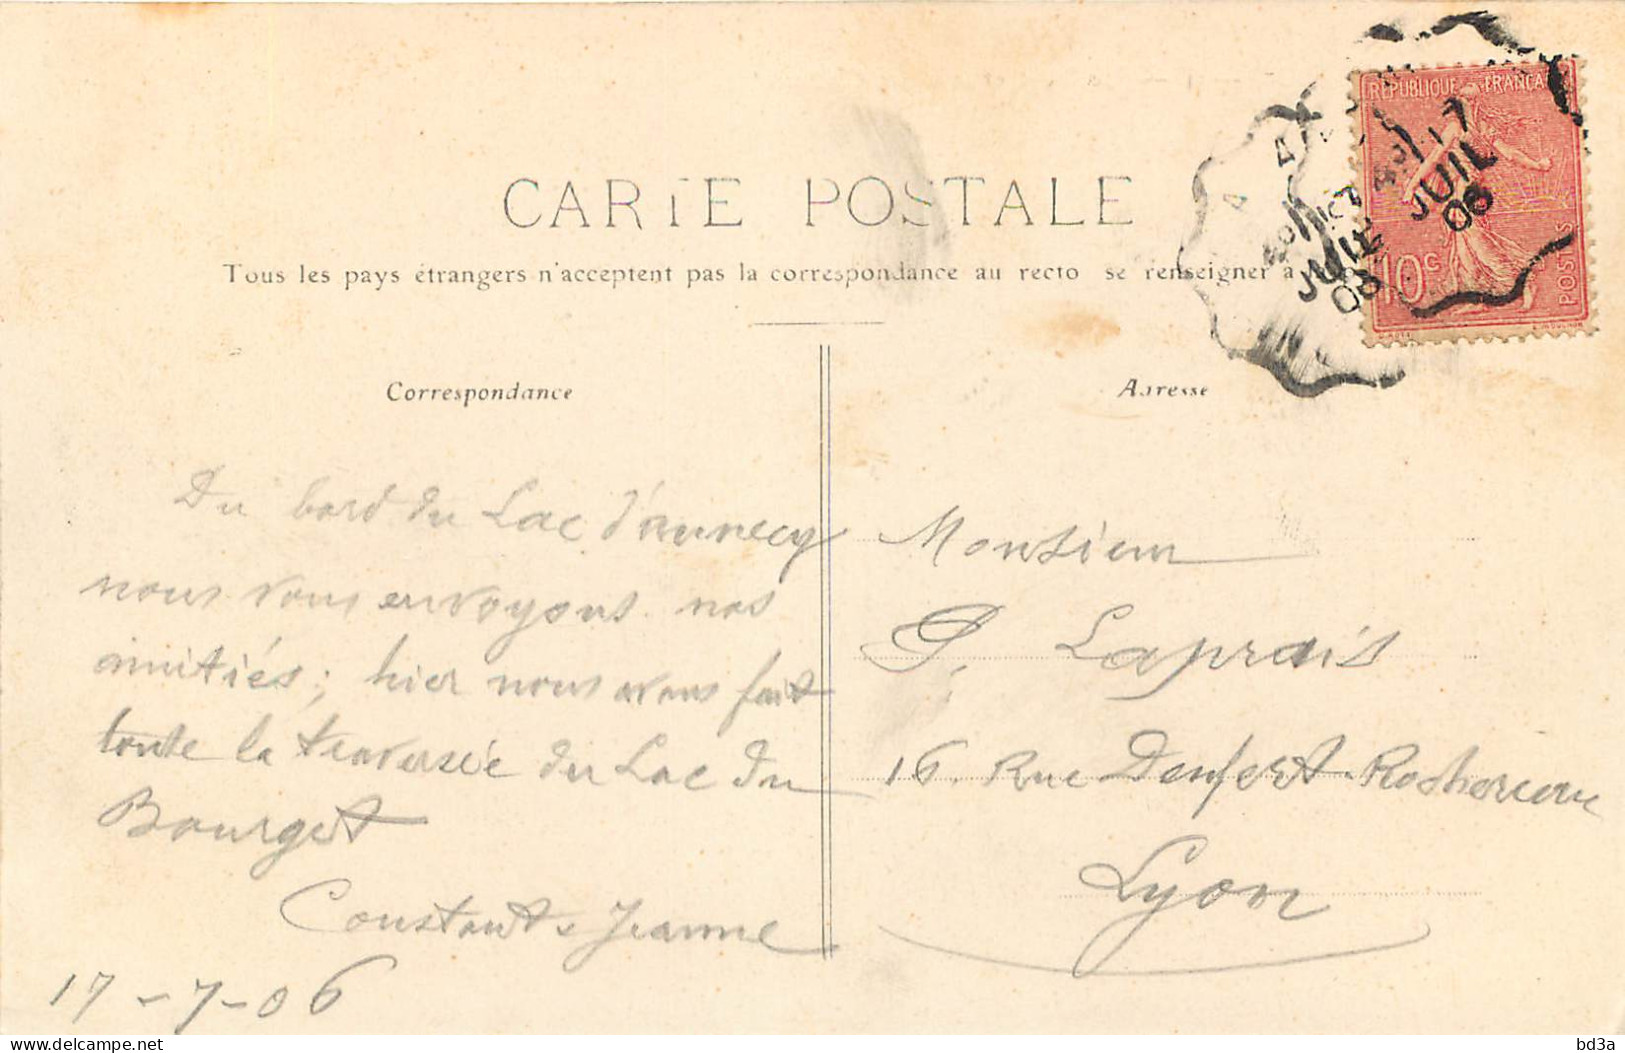 CARTE POSTALE
Tous les pays étrangers n'acceptent pas la correspondance au recto se renseigner à
RÉPUBLIQUE FRANÇA
10c
POSTES
17
JUIL
06
JUIL
06
Correspondance
Adresse
Du bord du Lac d'annecy
nous vous envoyons nos
amitiés; hier nous avons fait
toute la traversée du Lac du
Bourget
Constant & Jeanne
17-7-06
Monsieur
P. Laprais
16. Rue Denfert-Rochereau
Lyon
delcampe.net
bd3a